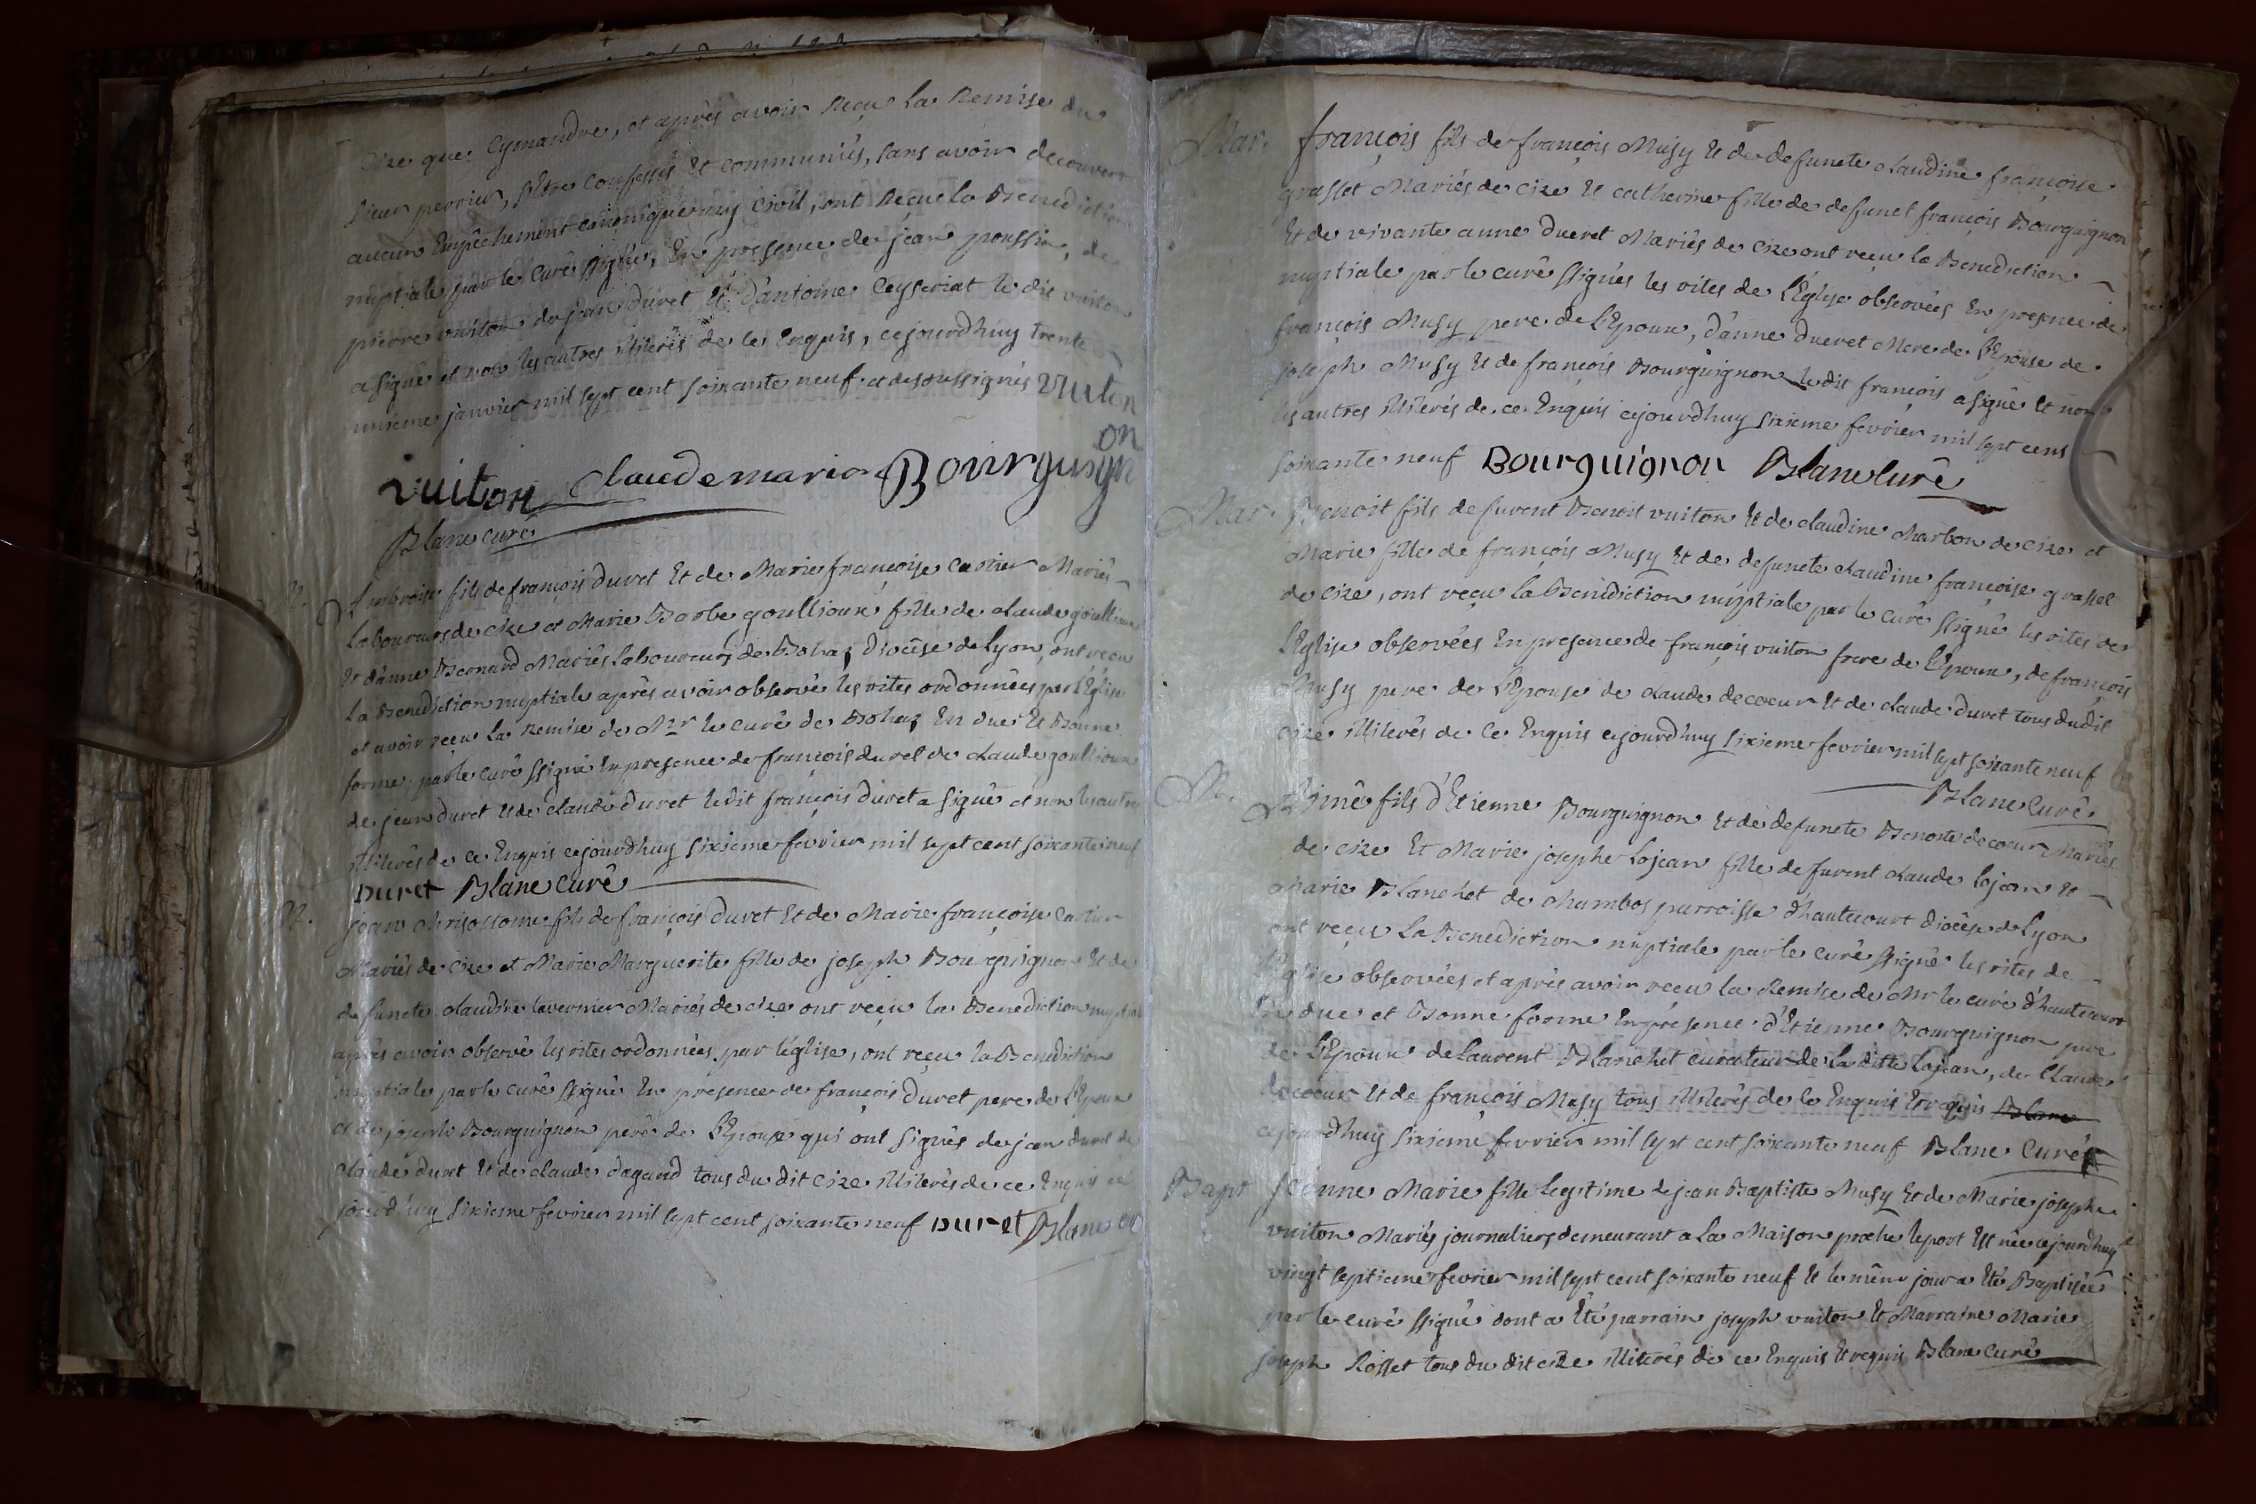 Cize que Cymandre, et après avoir Reçu la Remise du
sieur perrier, ptre confessés et communiés, sans avoir decouvert
aucun Empêchement canonique ny civil, ont Reçu la Benediction
nuptiale par le curé ssigné, En presence de jean poussin, de
pierre vuiton de jean duret Et d'antoine Ceyseriat le dit vuiton
a signé et non les autres illiterés de ce Enquis, cejourdhuy trente
unieme janvier mil sept cent soixante neuf et desoussignés vuiton
vuiton Claude marie Bourguignon
Blanc curé
M. Ambroise fils de françois duret Et de Marie françoise cartier Mariés
Laboureurs de cize et Marie Barbe goullioux fille de claude goullioux
Et d'anne Bernard Mariés Laboureurs de Bohaz Diocêse de Lyon, ont reçu
La Benediction nuptiale après avoir observé les rites ordonnées par l'Eglise
et avoir reçu La Remise de Mr le curé de Bohaz En due Et Bonne
forme, par le curé ssigné En presence de françois duret de claude goullioux
de jean duret Et de claude duret ledit françois duret a signé et non les autres
illiterés de ce Enquis cejourdhuy sixieme fevrier mil sept cent soixante neuf
Duret Blanc curé
M. jean chrisostome fils de françois duret Et de Marie françoise cartier
Mariés de cize et Marie Marguerite fille de joseph Bourguignon Et de
defuncte claudine tavernier Mariés de cize ont reçu la Benediction nuptiale
après avoir observé les rites ordonnées par l'église, ont reçu la Benediction
nuptiale par le curé ssigné En presence de françois duret pere de l'Epoux
et de joseph Bourguignon pere de L'Epouse qui ont signés de jean duret de
claude duret Et de claude dagand tous du dit cize illiterés de ce Enquis ce
jourd'huy sixieme fevrier mil sept cent soixante neuf Duret Blanc
Mar. françois fils de françois Musy Et de defuncte claudine françoise
grasset Mariés de cize Et catherine fille de defunct françois Bourguignon
Et de vivante anne dueret Mariés de cize ont reçu la Benediction
nuptiale par le curé ssigné les rites de l'Eglise observées En presence de
françois Musy pere de l'Epoux, d'anne dueret Mere de l'Epouse de
joseph Musy Et de françois Bourguignon ledit françois a signé Et non
les autres illiterés de ce Enquis cejourdhuy sixieme fevrier mil sept cens
soixante neuf Bourguignon Blanc curé
Mar. Benoit fils de furent Benoit vuiton Et de claudine charbon de cize et
Marie fille de françois Musy Et de defuncte claudine françoise grasset
de cize, ont reçu la Benediction nuptiale par le curé ssigné les rites de
L'Eglise observées En presence de françois vuiton frere de l'Epoux, de françois
Musy pere de l'Epouse de claude decoeur Et de claude duret tous dudit
cize illiterés de ce Enquis cejourdhuy sixieme fevrier mil sept soixante neuf
Blanc curé
M. Aimé fils d'Etienne Bourguignon Et de defuncte Benoite decoeur Mariés
de cize Et Marie josephe Lojean fille de furent claude lojean Et
Marie Blanchet de chambos parroisse d'hautecourt diocêse de Lyon
ont reçu La Benediction nuptiale par le curé ssigné les rites de
l'Eglise observées et après avoir reçu la Remise de Mr le curé d'hautecourt
En due et Bonne forme En presence d'Etienne Bourguignon pere
de l'Epoux de Laurent Blanchet curateur de la ditte Lojean, de claude
decoeur Et de françois Musy tous illiterés de ce Enquis Et requis Blanc
cejourdhuy sixieme fevrier mil sept cent soixante neuf Blanc Curé
Bapt jeanne Marie fille Legitime de jean Baptiste Musy Et de Marie josephe
vuiton Mariés journaliers demeurant a La Maison proche leport Est née cejourdhuy
vingt septieme fevrier mil sept cent soixante neuf Et le même jour a Eté Baptisée
par le curé ssigné dont a Eté parrain joseph vuiton Et Marraine Marie
joseph Rosset tous du dit cize illiterés de ce Enquis Et requis Blanc curé